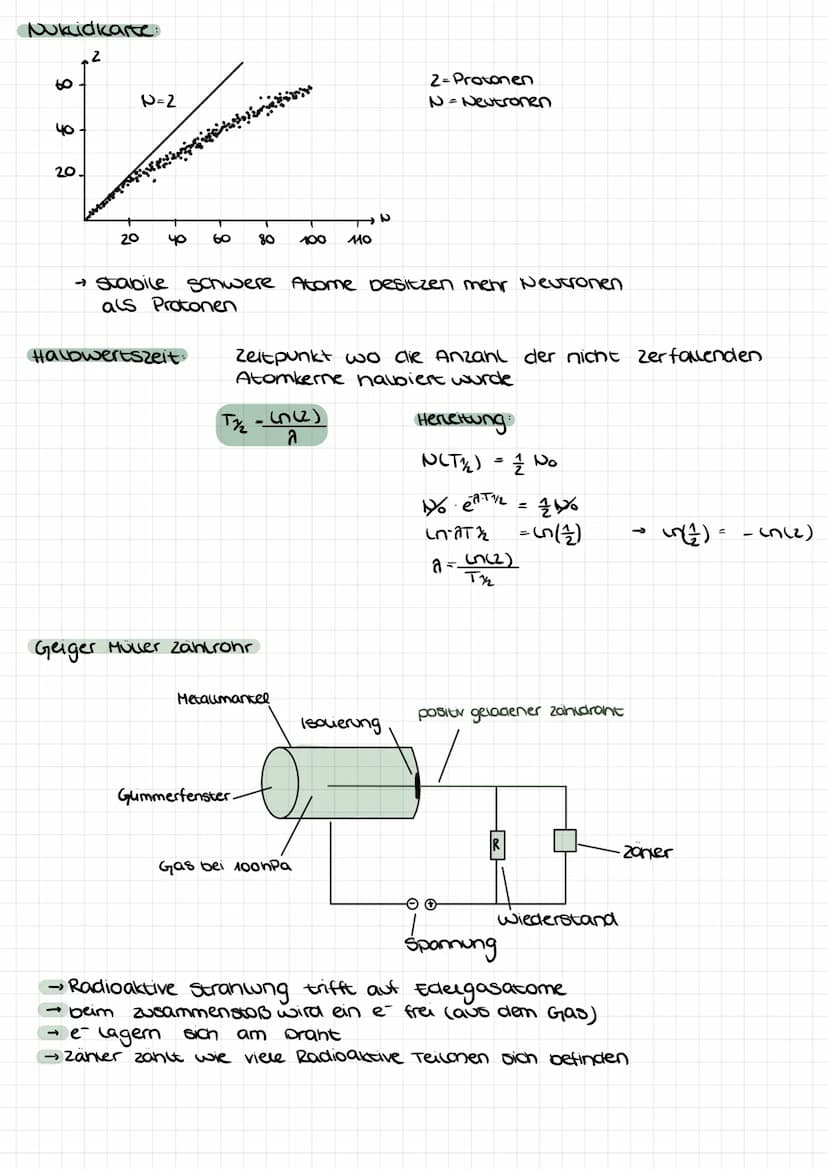 Nuklidkarte:
Z
60
40
20
N=Z
N
20 40 60 80 100 110
Z=Protonen
N = Neutronen
→ stabile schwere Atome besitzen mehr Neutronen
als Protonen
Halbwertszeit: Zeitpunkt wo die Anzahl der nicht zerfallenden
Atomkerne halbiert wurde
T½ = ln(2)/λ
Herleitung:
N(T½) = 1/2 N₀
N₀ · e^-λ·T1/2 = 1/2 N₀
ln-λT½ = ln(1/2) → ln(1/2) = - ln(2)
λ = ln(2)/T½
Geiger Müller Zählrohr
Metallmantel
Isolierung
positiv geladener Zähldraht
Glimmerfenster
Gas bei 100hPa
R
Zähler
Wiederstand
⊖ ⊕
Spannung
→ Radioaktive Strahlung trifft auf Edelgasatome
→ beim zusammenstoß wird ein e⁻ frei (aus dem Gas)
→ e⁻ lagern sich am Draht
→ Zähler zählt wie viele Radioaktive Teilchen sich befinden